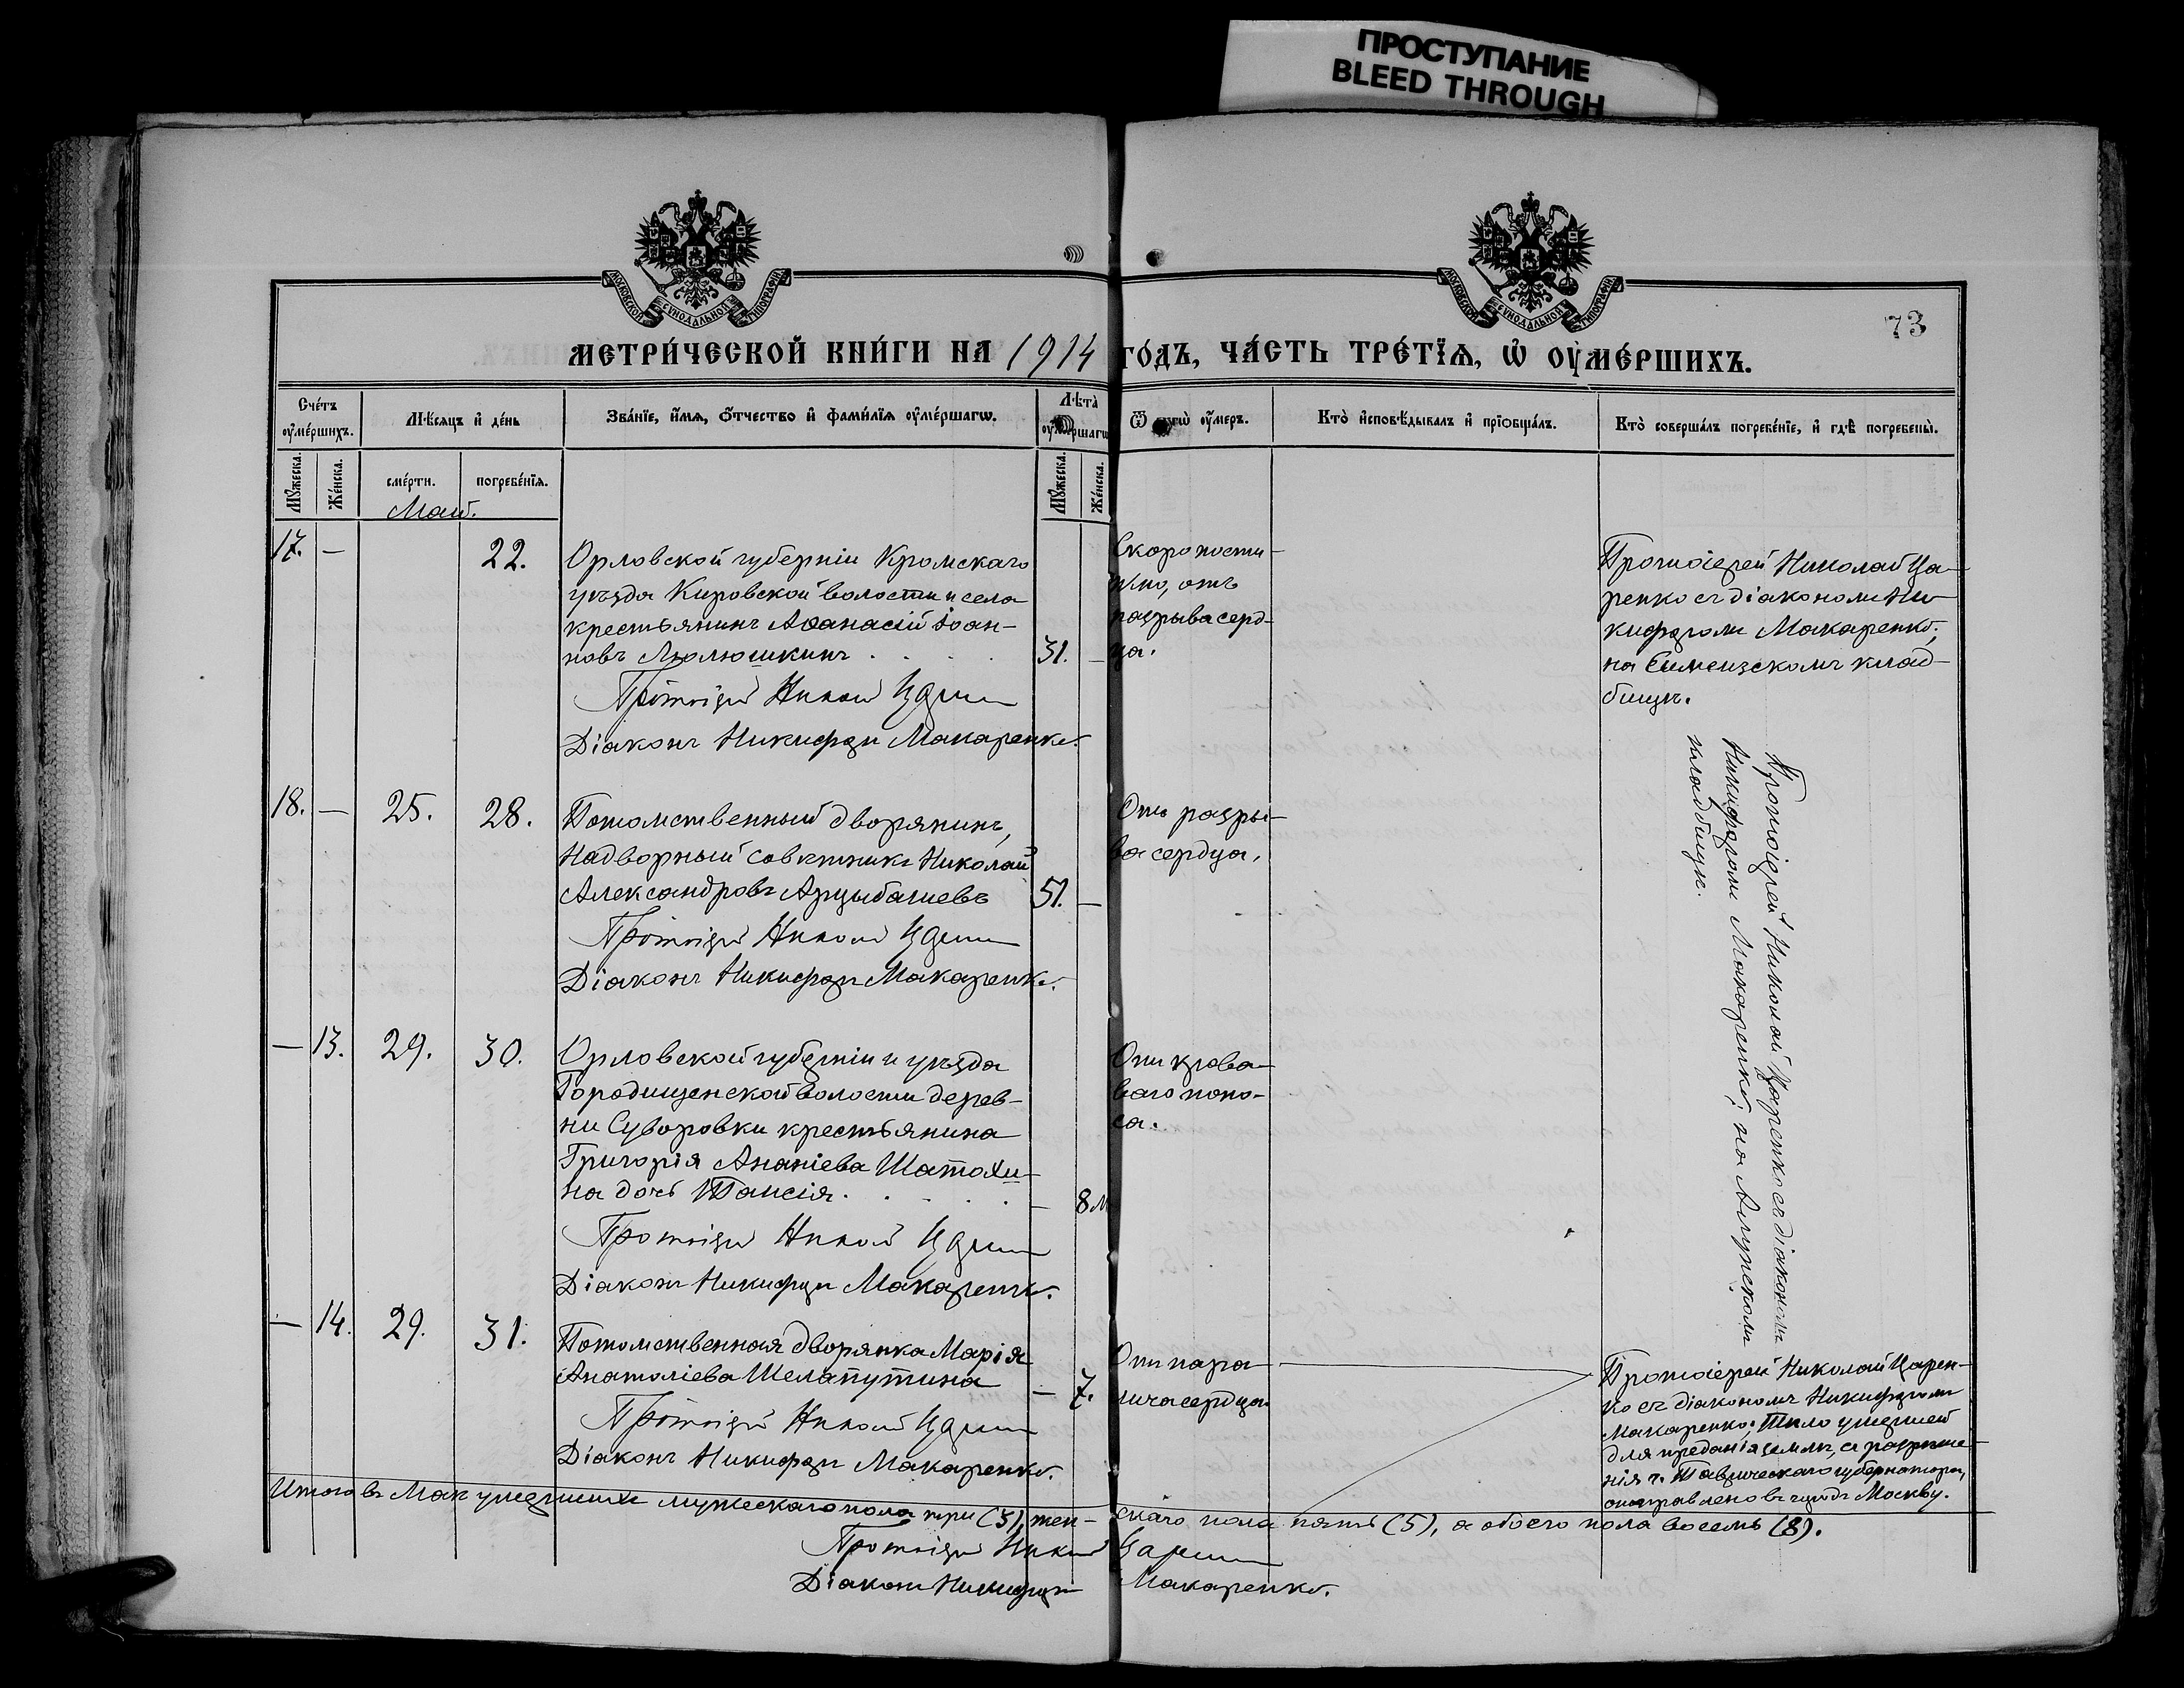 ПРОСТУПАНИЕ
BLEED THROUGH
МОСКОВСКОЙ СѴНОДАЛЬНОЙ ТИПОГРАФІИ
МОСКОВСКОЙ СѴНОДАЛЬНОЙ ТИПОГРАФІИ
73
МЕТРИ́ЧЕСКОЙ КНИ́ГИ НА 1914 ГО́ДЪ, ЧА́СТЬ ТРЕ́ТЇѦ, Ѡ҆ ОУ҆МЕ́РШИХЪ.
Сче́тъ оу҆ме́ршихъ.
Мѣ́сяцъ и҆ де́нь
Зва́нїе, и҆́мя, ѻ҆́тчество и҆ фами́лїя оу҆ме́ршагѡ.
Лѣ́та оу҆ме́ршагѡ
Ѿ чегѡ̀ оу҆́меръ.
Кто̀ и҆сповѣ́дывалъ и҆ прїѡбща́лъ.
Кто̀ соверша́лъ погребе́нїе, и҆ гдѣ̀ погребены̀.
Мꙋ́жеска.
Же́нска.
сме́рти.
погребе́нїя.
Мꙋ́жеска.
Же́нска.
Май.
17. — 22.
Орловской губерніи Кромскаго
уѣзда Кировской волости и села
крестьянинъ Аѳанасій Іоан-
новъ Люлюшкинъ . . . . 31. —
Протоіерей Николай Царенко
Діаконъ Никифоръ Макаренко.
Скоропости-
жно, отъ
разрыва серд-
ца.
Протоіерей Николай Ца-
ренко съ діакономъ Ни-
кифоромъ Макаренко;
на Симеизскомъ клад-
бищѣ.
18. — 25. 28.
Потомственный дворянинъ,
Надворный совѣтникъ Николай
Александровъ Арцыбашевъ 51. —
Протоіерей Николай Царенко
Діаконъ Никифоръ Макаренко.
Отъ разры-
ва сердца.
Протоіерей Николай Царенко съ діакономъ
Никифоромъ Макаренко; на Алупскомъ
кладбищѣ.
— 13. 29. 30.
Орловской губерніи и уѣзда
Городищенской волости дерев-
ни Суворовки крестьянина
Григорія Ананіева Шатохи-
на дочь Таисія . . . . — 8 м
Протоіерей Николай Царенко
Діаконъ Никифоръ Макаренко.
Отъ крова-
ваго поно-
са.
— 14. 29. 31.
Потомственная дворянка Марія
Анатоліева Шелапутина — 7.
Протоіерей Николай Царенко
Діаконъ Никифоръ Макаренко.
Отъ пара-
лича сердца
Протоіерей Николай Царен-
ко съ діакономъ Никифоромъ
Макаренко; Тѣло умершей
для преданія землѣ, съ разрѣше-
нія г. Таврическаго губернатора,
отправлено въ городъ Москву.
Итого въ Маѣ умершихъ мужескаго пола три (3), жен-
скаго пола пять (5), а обоего пола восемь (8).
Протоіерей Николай Царенко
Діаконъ Никифоръ Макаренко.